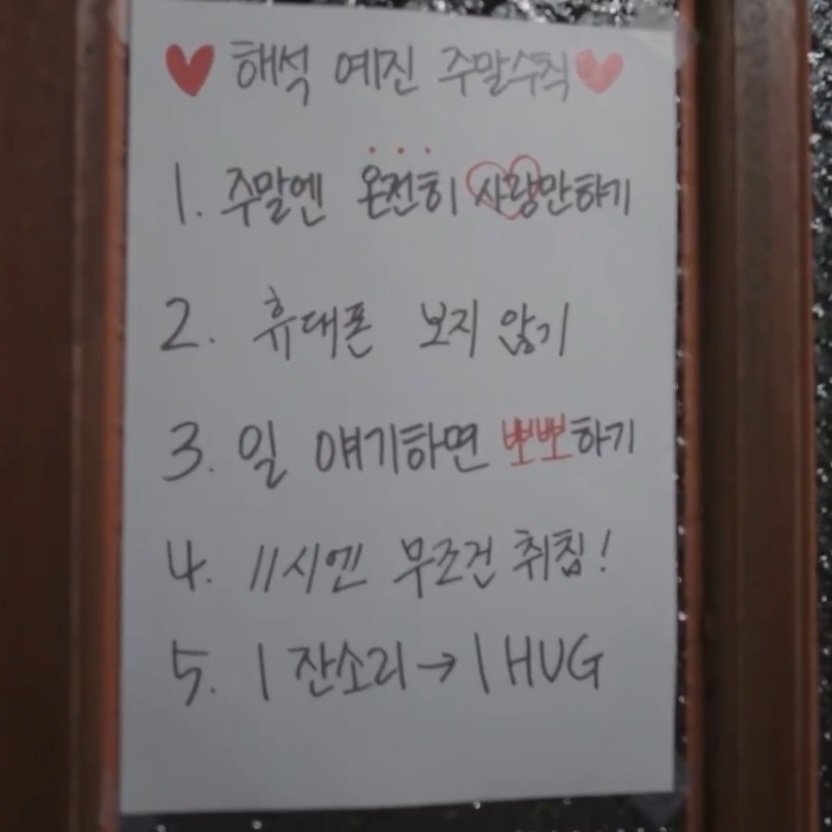 ♥해석 예진 주말수칙♥
1. 주말엔 온전히 사랑만하기
2. 휴대폰 보지 않기
3. 일 얘기하면 뽀뽀하기
4. 11시엔 무조건 취침!
5. 1 잔소리→1 HUG